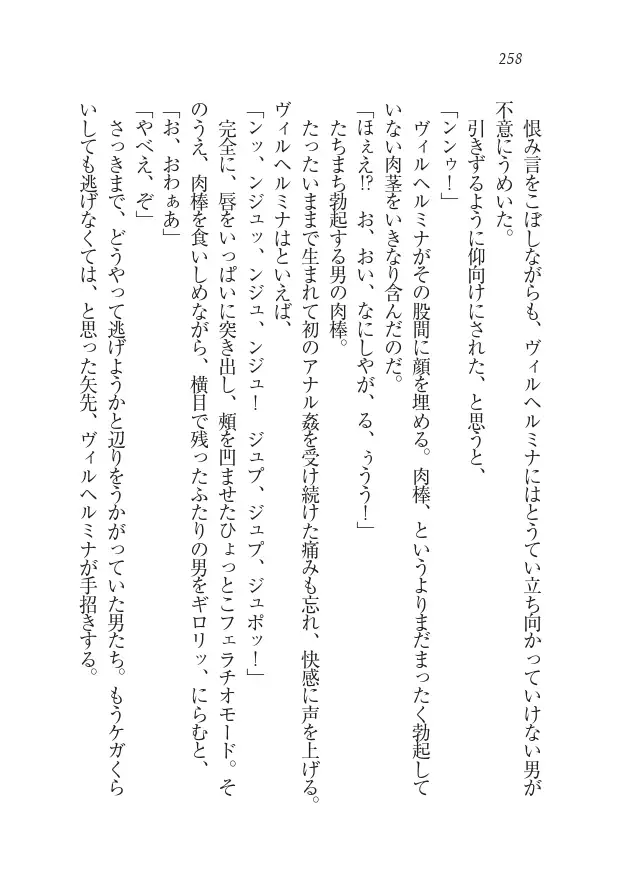 258
恨み言をこぼしながらも、ヴィルヘルミナにはとうてい立ち向かっていけない男が
不意にうめいた。
引きずるように仰向けにされた、と思うと、
「ンンゥ！」
ヴィルヘルミナがその股間に顔を埋める。肉棒、というよりまだまったく勃起して
いない肉茎をいきなり含んだのだ。
「ほぇえ!?　お、おい、なにしやが、る、ぅうう！」
たちまち勃起する男の肉棒。
たったいままで生まれて初のアナル姦を受け続けた痛みも忘れ、快感に声を上げる。
ヴィルヘルミナはといえば、
「ンッ、ンジュッ、ンジュ、ンジュ！　ジュプ、ジュプ、ジュポッ！」
完全に、唇をいっぱいに突き出し、頰を凹ませたひょっとこフェラチオモード。そ
のうえ、肉棒を食いしめながら、横目で残ったふたりの男をギロリッ、にらむと、
「お、おわぁあ」
「やべえ、ぞ」
さっきまで、どうやって逃げようかと辺りをうかがっていた男たち。もうケガくら
いしても逃げなくては、と思った矢先、ヴィルヘルミナが手招きする。